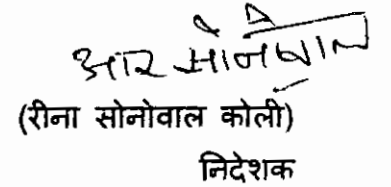 आर सोनोवाल
(रीना सोनोवाल कोली)
निदेशक